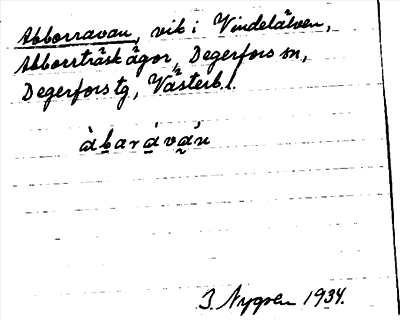 Abborravan, vik i Vindelälven,
Abborrträsk ägor, Degerfors sn,
Degerfors tg, Västerb. l.
àb̲arà̲và̲n
J. Nygren 1934.